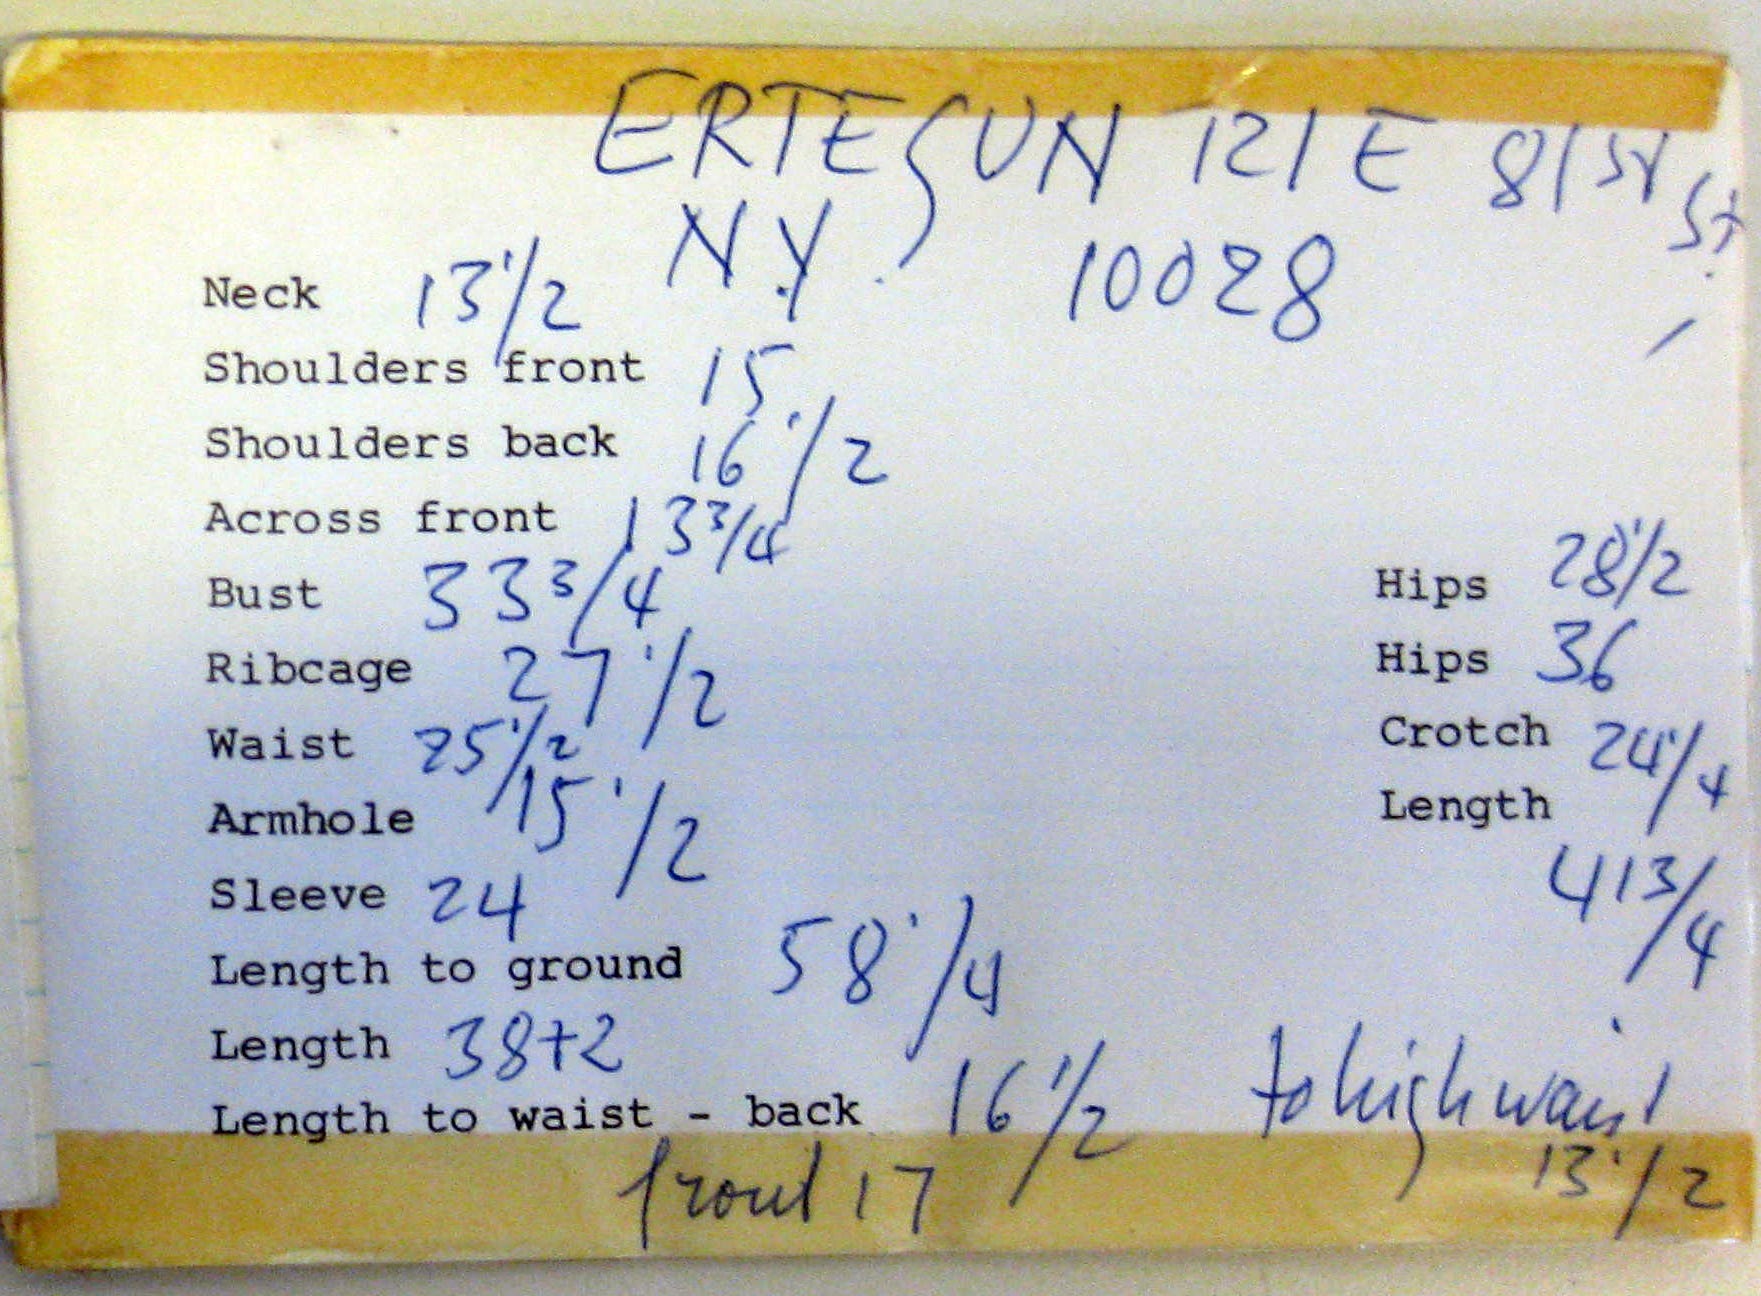 ERTEGUN 121 E 81 St St.
N.Y. 10028
Neck 13 1/2
Shoulders front 15
Shoulders back 16 1/2
Across front 13 3/4
Bust 33 3/4
Ribcage 27 1/2
Waist 25 1/2
Armhole 15 1/2
Sleeve 24
Length to ground 58 1/4
Length 38+2
Length to waist - back 16 1/2
front 17
Hips 28 1/2
Hips 36
Crotch 24 1/4
Length
41 3/4
to high waist
13 1/2